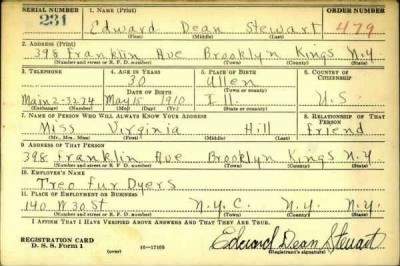 SERIAL NUMBER 1. NAME (Print) ORDER NUMBER
231 Edward Dean Stewart 479
(First) (Middle) (Last)
2. ADDRESS (Print)
398 Franklin Ave Brooklyn Kings N.Y.
(Number and street or R. F. D. number) (Town) (County) (State)
3. TELEPHONE 4. AGE IN YEARS 5. PLACE OF BIRTH 6. COUNTRY OF CITIZENSHIP
30 Allen
DATE OF BIRTH (Town or county)
Main 2-3274 May 15 1910 Ill. U.S
(Exchange) (Number) (Mo.) (Day) (Yr.) (State or country)
7. NAME OF PERSON WHO WILL ALWAYS KNOW YOUR ADDRESS 8. RELATIONSHIP OF THAT PERSON
Miss Virginia Hill Friend
(Mr., Mrs., Miss) (First) (Middle) (Last)
9. ADDRESS OF THAT PERSON
398 Franklin Ave Brooklyn Kings N.Y.
(Number and street or R. F. D. number) (Town) (County) (State)
10. EMPLOYER'S NAME
Treo Fur Dyers
11. PLACE OF EMPLOYMENT OR BUSINESS
140 W 30 St N.Y.C. N.Y. N.Y.
(Number and street or R. F. D. number) (Town) (County) (State)
I AFFIRM THAT I HAVE VERIFIED ABOVE ANSWERS AND THAT THEY ARE TRUE.
REGISTRATION CARD
D. S. S. Form 1 (over) 16—17105 Edward Dean Stewart
(Registrant's signature)